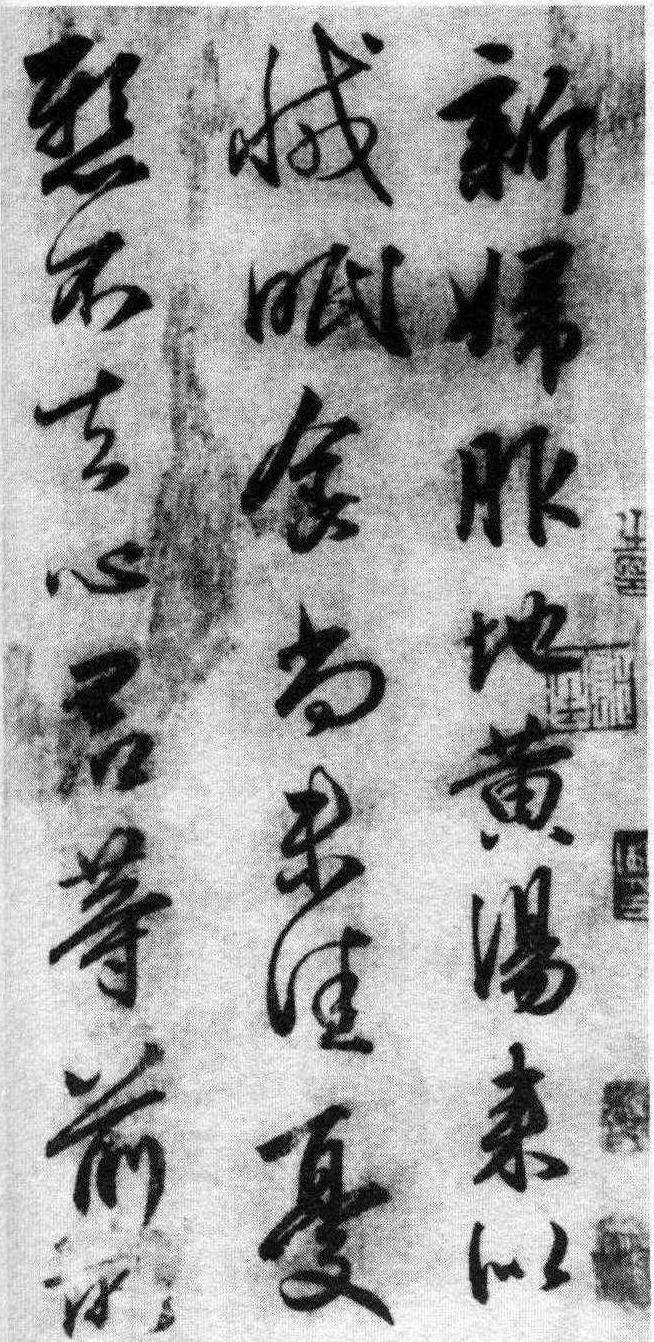 新婦服地黃湯來似
減眠食尚未佳憂
懸不去心君等前